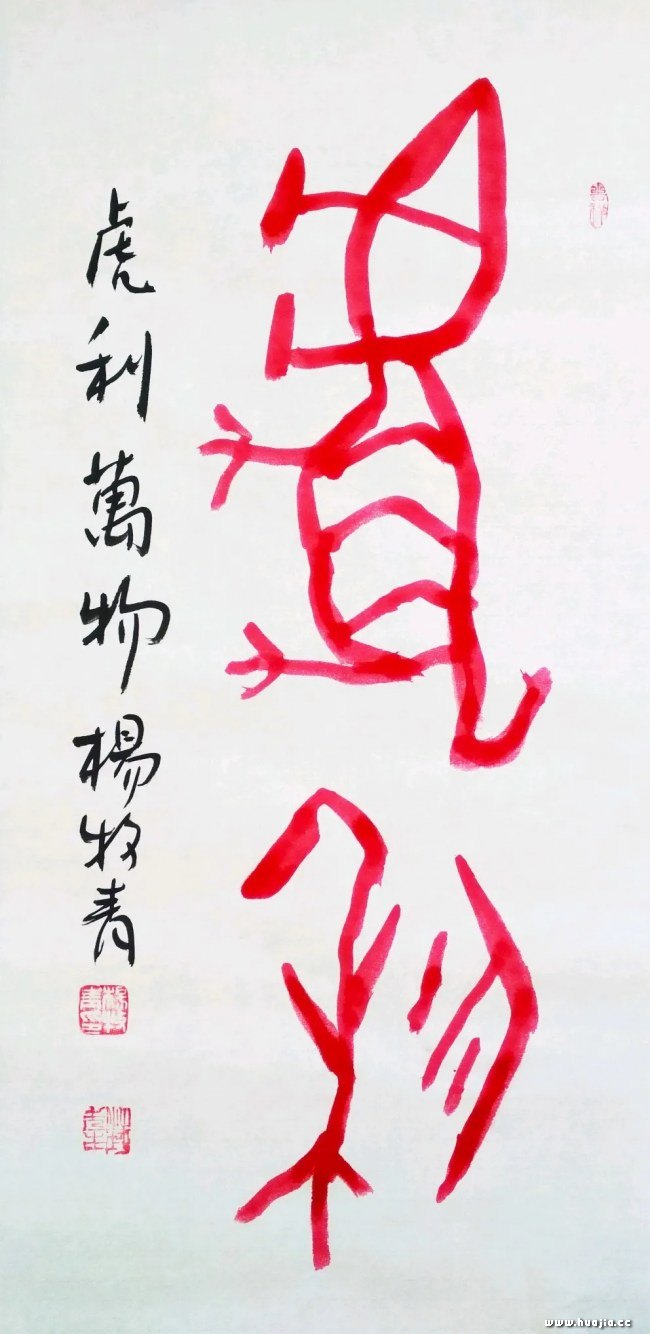 虎利
虎利萬物 楊牧青
www.huajia.cc